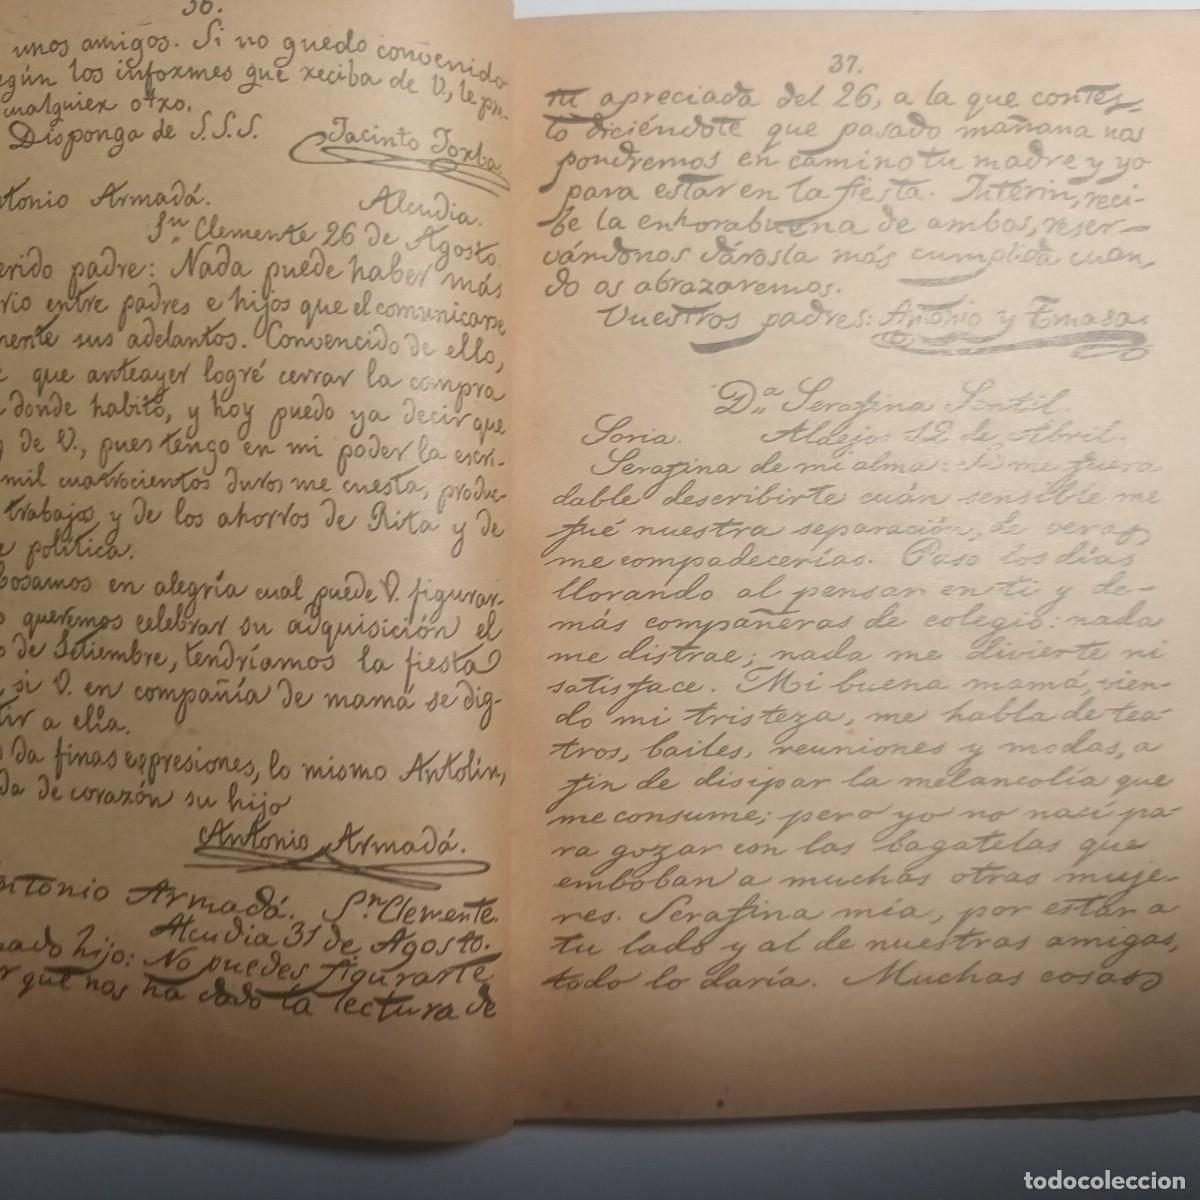 36.
unos amigos. Si no quedo convenido
según los informes que reciba de V., le pn-
cualquier otro.
Disponga de S.S.S.
Jacinto Torba
Antonio Armadá. Alcudia.
Sn. Clemente 26 de Agosto.
erido padre: Nada puede haber más
rio entre padres e hijos que el comunicarse
mente sus adelantos. Convencido de ello,
que anteayer logré cerrar la compra
donde habito, y hoy puedo ya decir que
de V., pues tengo en mi poder la escri-
mil cuatrocientos duros me cuesta, produc-
trabajos, y de los ahorros de Rita y de
política.
bosamos en alegría cual puede V. figurar-
queremos celebrar su adquisición el
de Setiembre, tendríamos la fiesta
si V. en compañía de mamá se dig-
tir a ella.
da finas expresiones, lo mismo Antolín,
da de corazón su hijo
Antonio Armadá.
Antonio Armadá. Sn. Clemente.
Alcudia 31 de Agosto.
mado hijo: No puedes figurarte
que nos ha dado la lectura de
37.
tu apreciada del 26, a la que contes-
to diciéndote que pasado mañana nos
pondremos en camino tu madre y yo
para estar en la fiesta. Interin, reci-
be la enhorabuena de ambos, reser-
vándonos dárosla más cumplida cuan-
do os abrazaremos.
Vuestros padres: Antonio y Tomasa.
Da. Serafina Sentil.
Soria. Aldejos 12 de Abril.
Serafina de mi alma: Si me fuera
dable describirte cuán sensible me
fué nuestra separación, de veras
me compadecerías. Paso los días
llorando al pensar en ti y de-
más compañeras de colegio: nada
me distrae; nada me divierte ni
satisface. Mi buena mamá, vien-
do mi tristeza, me habla de tea-
tros, bailes, reuniones y modas, a
fin de disipar la melancolía que
me consume; pero yo no nací pa-
ra gozar con las bagatelas que
emboban a muchas otras muje-
res. Serafina mía, por estar a
tu lado y al de nuestras amigas,
todo lo daría. Muchas cosas
todocoleccion